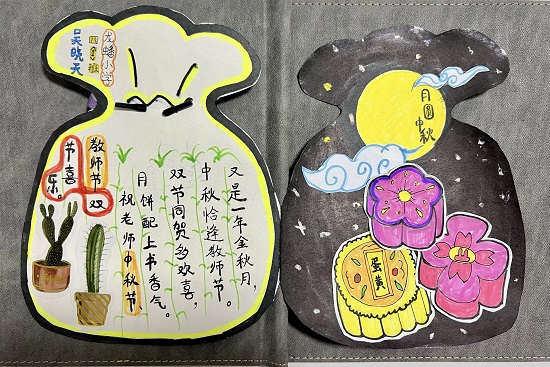 龙蟠小学
吴晓天
又是一年金秋月，
中秋恰逢教师节。
双节同贺多欢喜，
月饼配上书香气。
祝老师中秋节
教师节双
节喜乐。
月圆
中秋
蛋黄